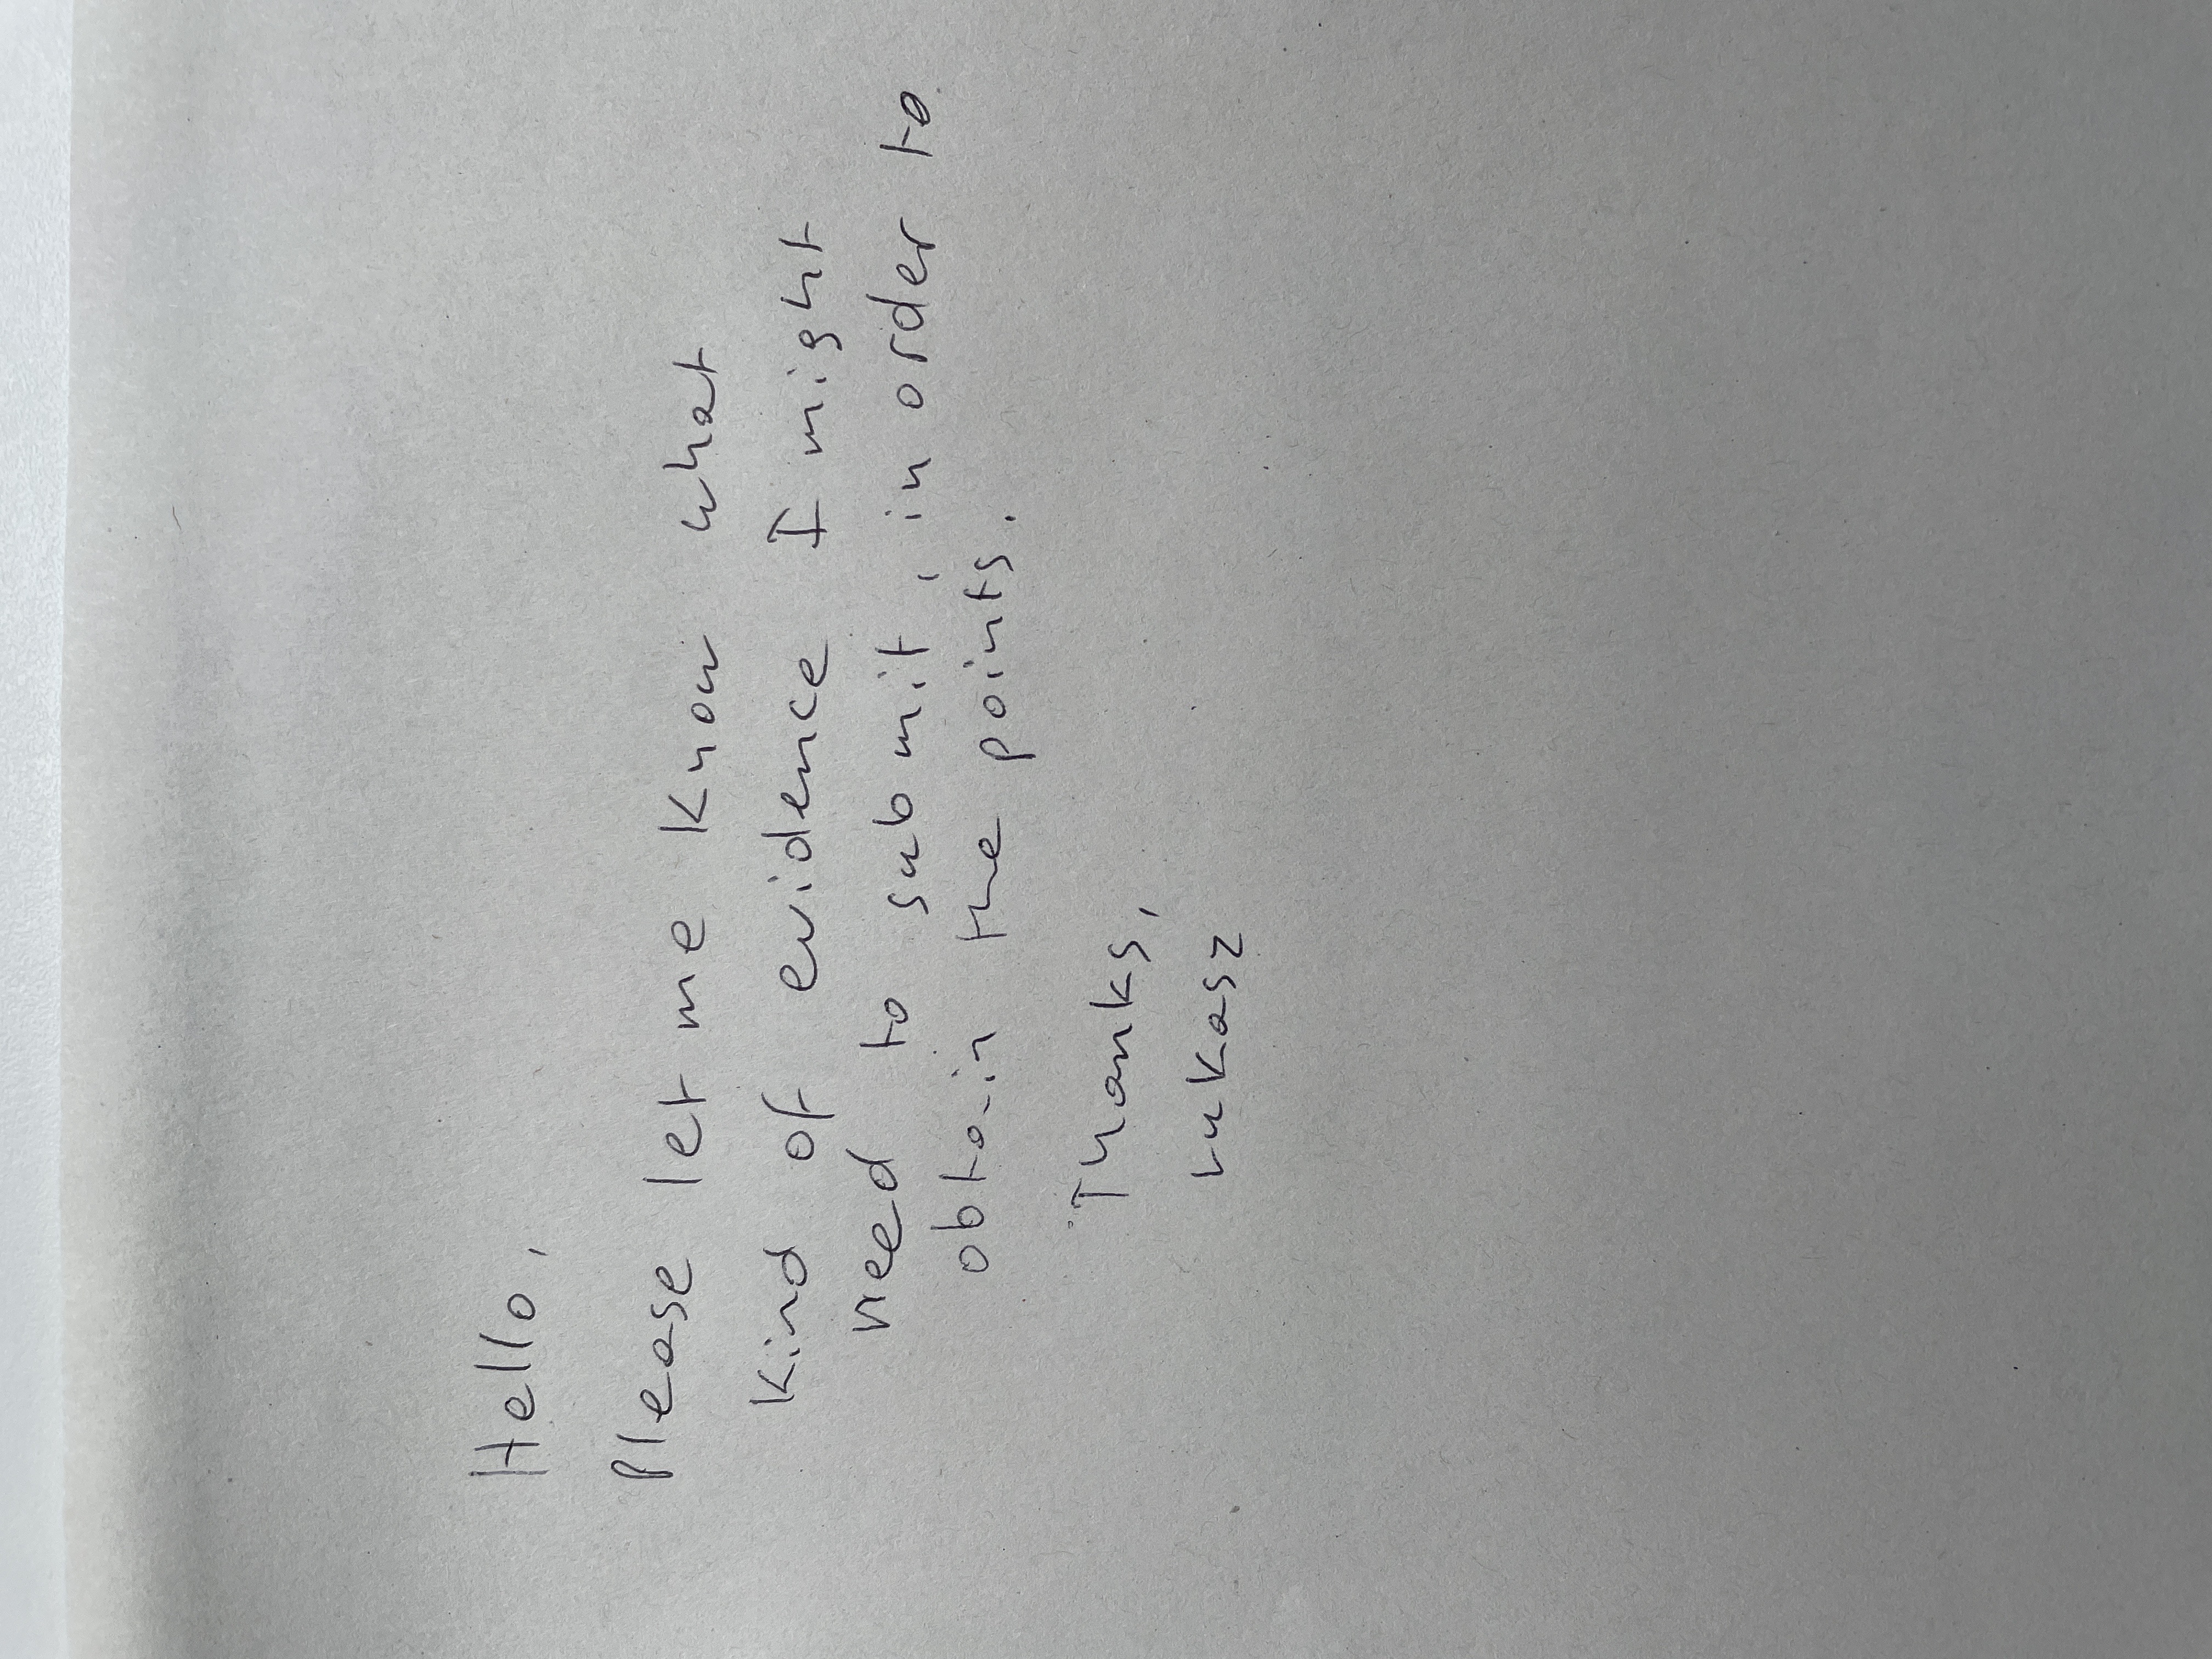 Hello,
Please let me know what
kind of evidence I might
need to submit, in order to
obtain the points.
Thanks,
Lukasz